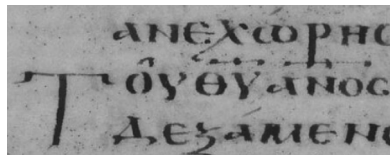 ΑΝΕΧΩΡΗϹ
ΤΟΥΘΥΑΝΟϹ
ΔΕΞΑΜΕΝΟ